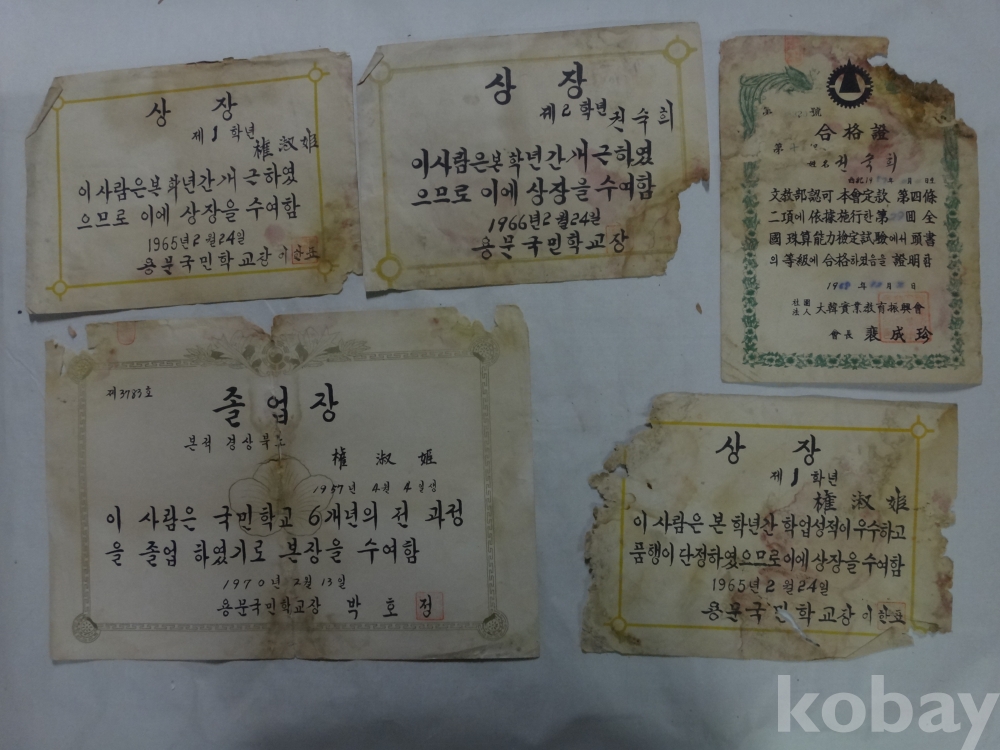 상 장
제 1 학년
權 淑 姬
이 사람은 본 학년간 개근하였
으므로 이에 상장을 수여함
1965년 2월 24일
용문국민학교장
상 장
제 2 학년 권숙희
이 사람은 본 학년간 개근하였
으므로 이에 상장을 수여함
1966년 2월 24일
용문국민학교장
號
合格證
姓名 권숙희
文敎部認可 本會定款 第四條
二項에 依據施行한 第 回 全
國 珠算能力檢定試驗에서 頭書
의 等級에 合格하였음을 證明함
19 年 月 日
社團
法人 大韓實業敎育振興會
會長 裵成珍
제3783호
졸업장
본적 경상북도
權 淑 姬
1957년 4월 4일생
이 사람은 국민학교 6개년의 전 과정
을 졸업 하였기로 본장을 수여함
1970년 2월 13일
용문국민학교장 박호정
상 장
제 1 학년
權 淑 姬
이 사람은 본 학년간 학업성적이 우수하고
품행이 단정하였으므로 이에 상장을 수여함
1965년 2월 24일
용문국민학교장
kobay